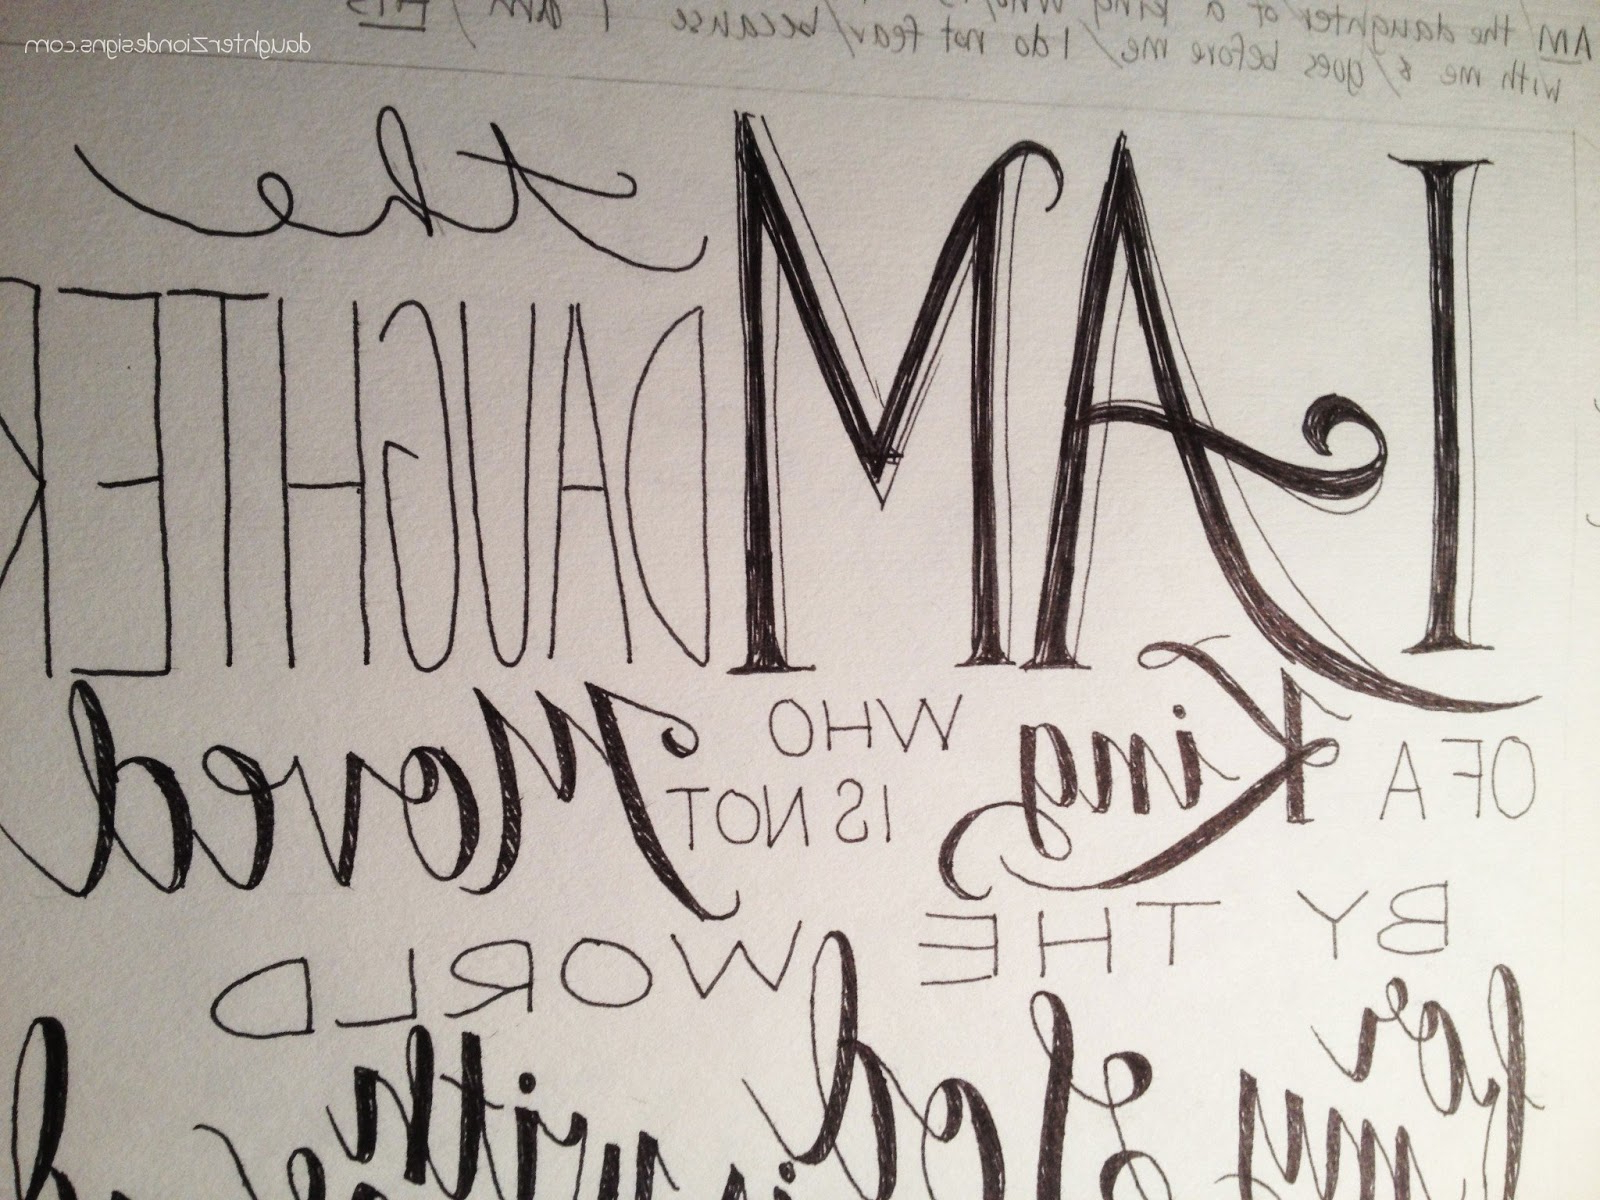 AM the daughter of a king who is
with me & / goes before me / I do not fear / because I am / HIS
daughterZiondesigns.com
I AM the
DAUGHTER
OF A King WHO
IS NOT Moved
BY THE WORLD
for my God is with